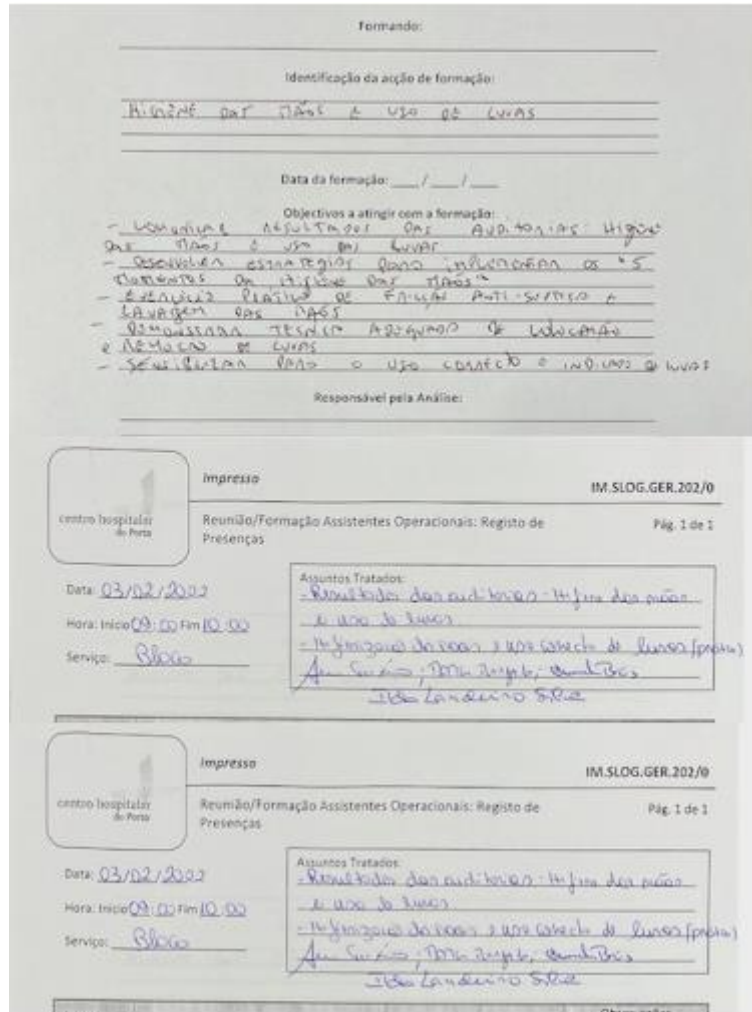 Formando:
Identificação da acção de formação:
HIGIENE DAS MÃOS E USO DE LUVAS
Data da formação: ___/___/___
Objectivos a atingir com a formação:
- COMUNICAR RESULTADOS DAS AUDITORIAS: HIGIENE
DAS MÃOS E USO DAS LUVAS
- DESENVOLVER ESTRATEGIAS PARA IMPLEMENTAR OS "5
MOMENTOS DA HIGIENE DAS MÃOS"
- EXERCICIO PRATICO DE FRICÇÃO ANTI-SEPTICA E
LAVAGEM DAS MÃOS
- DEMONSTRAR TECNICA ADEQUADA DE COLOCAÇÃO
E REMOÇÃO DE LUVAS
- SENSIBILIZAR PARA O USO CORRECTO E INDICADO DE LUVAS
Responsável pela Análise:
centro hospitalar
do Porto
Impresso
IM.SLOG.GER.202/0
Reunião/Formação Assistentes Operacionais: Registo de
Presenças
Pág. 1 de 1
Data: 03/02/20
Hora: Início 09:00 Fim 10:00
Serviço: Bloco
Assuntos Tratados:
- Resultados das auditorias - das mãos
e uso de luvas
- e uso correcto de luvas
Landeiro Silva
centro hospitalar
do Porto
Impresso
IM.SLOG.GER.202/0
Reunião/Formação Assistentes Operacionais: Registo de
Presenças
Pág. 1 de 1
Data: 03/02/20
Hora: Início 09:00 Fim 10:00
Serviço: Bloco
Assuntos Tratados:
- Resultados das auditorias - das mãos
e uso de luvas
- e uso correcto de luvas
Landeiro Silva